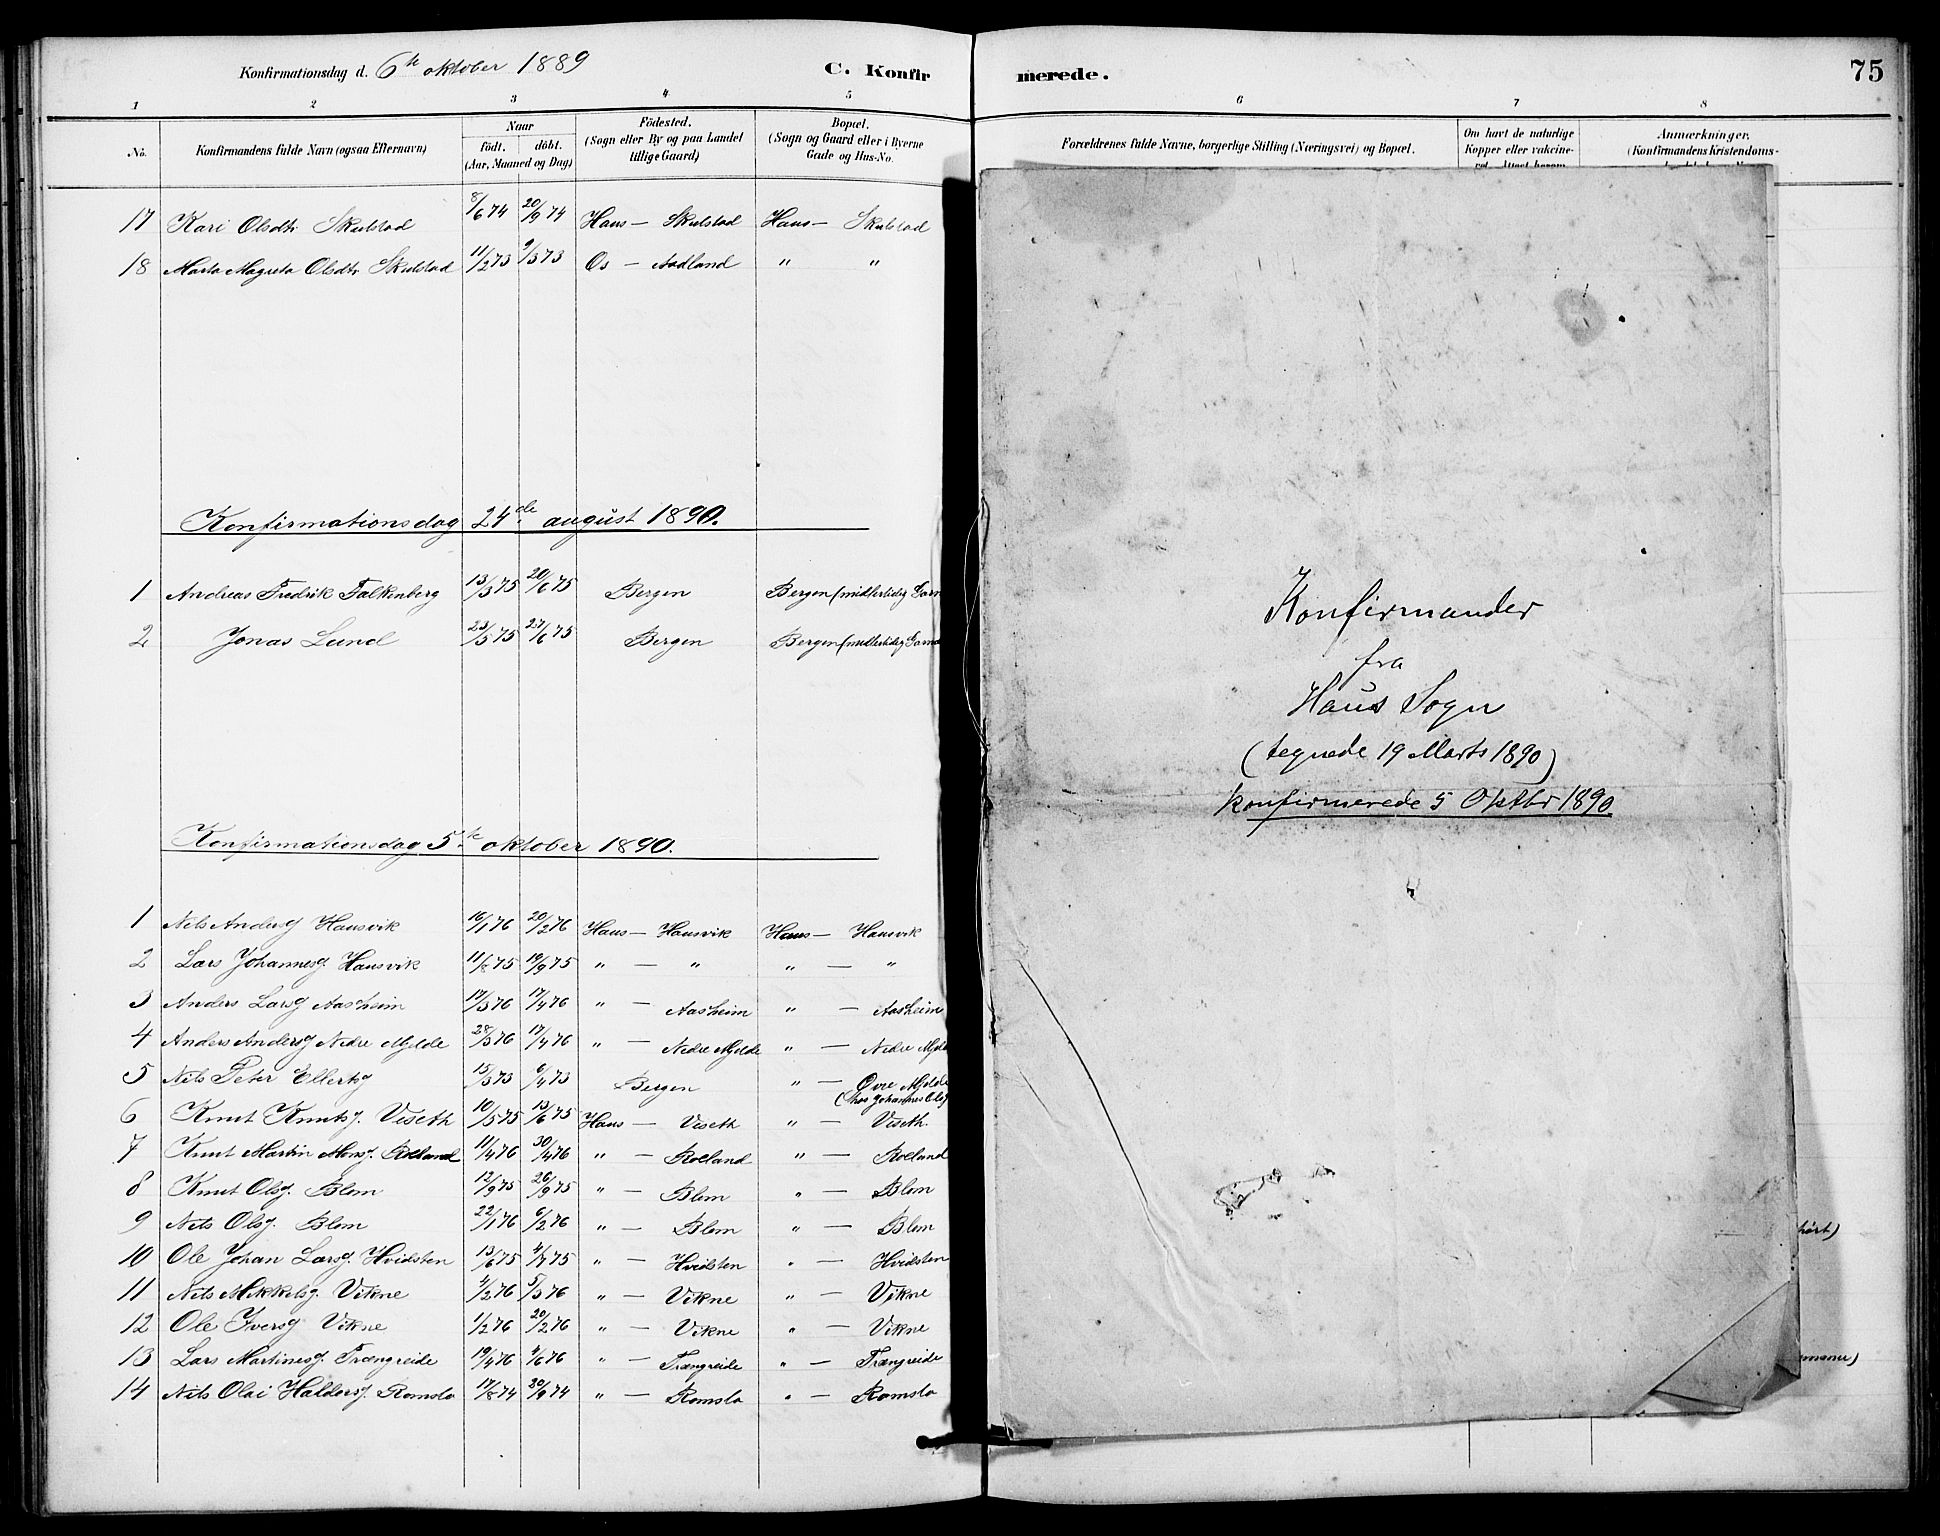 Konfirmationsdag d. 6te oktober 1889 C. Konfirmerede. 75
1 2 3 4 5 6 7 8
No. Konfirmandens fulde Navn (ogsaa Efternavn) Naar födt. döbt. (Aar, Maaned og Dag) Födested. (Sogn eller By og paa Landet tillige Gaard) Bopæl. (Sogn og Gaard eller i Byerne Gade og Hus-No. Forældrenes fulde Navne, borgerlige Stilling (Næringsvei) og Bopæl. Om havt de naturlige Kopper eller vakcine- Anmærkninger. (Konfirmandens Kristendoms-
17 Kari Olsdtr Skulstad 8/6 74 20/9 74 Haus — Skulstad Haus — Skulstad
18 Marta Magreta Olsdtr Skulstad 11/2 73 9/3 73 Os — Aadland " "
Konfirmationsdag 24de august 1890.
1 Andreas Fredrik Falkenberg 13/3 75 20/6 75 Bergen Bergen (midlertidig Garn
2 Jonas Lund 23/5 75 27/6 75 Bergen Bergen (midlertidig Garn
Konfirmationsdag 5te oktober 1890.
1 Nils Andersg Hausvik 16/1 76 20/2 76 Haus — Hausvik Haus — Hausvik
2 Lars Johannesg. Hausvik 11/8 75 19/9 75 " — " " — "
3 Anders Larsg Aasheim 17/3 76 17/4 76 " — Aasheim " — Aasheim
4 Anders Andersg Nedre Mjelde 28/3 76 17/4 76 " — Nedre Mjelde " — Nedre Mjel
5 Nils Peter Ellertsg 15/3 73 6/4 73 Bergen " — Øvre Mjelde
(hos Johannes Olsg
6 Knut Knutsg. Viseth 10/5 75 13/6 75 Haus — Viseth " — Viseth.
7 Knut Martin Monsg. Rolland 11/4 76 30/4 76 " — Rolland " — Rolland
8 Knut Olsg. Blom 12/9 75 26/9 75 " — Blom " — Blom
9 Nils Olsg. Blom 22/1 76 6/2 76 " — Blom " — Blom
10 Ole Johan Larsg. Hvidsten 13/6 75 4/7 75 " — Hvidsten " — Hvidsten
11 Nils Mikkelsg. Vikne 4/2 76 5/3 76 " — Vikne " — Vikne
12 Ole Iversg Vikne 1/2 76 20/2 76 " — Vikne " — Vikne
13 Lars Martinesg. Trængreide 19/4 76 4/6 76 " — Trængreide " — Trængreide
14 Nils Olai Haldorsg. Romslo 17/8 74 20/9 74 " — Romslo " — Romslo
Konfirmander
fra
Haus Sogn
(tegnede 19 Marts 1890)
konfirmerede 5 Oktbr 1890.